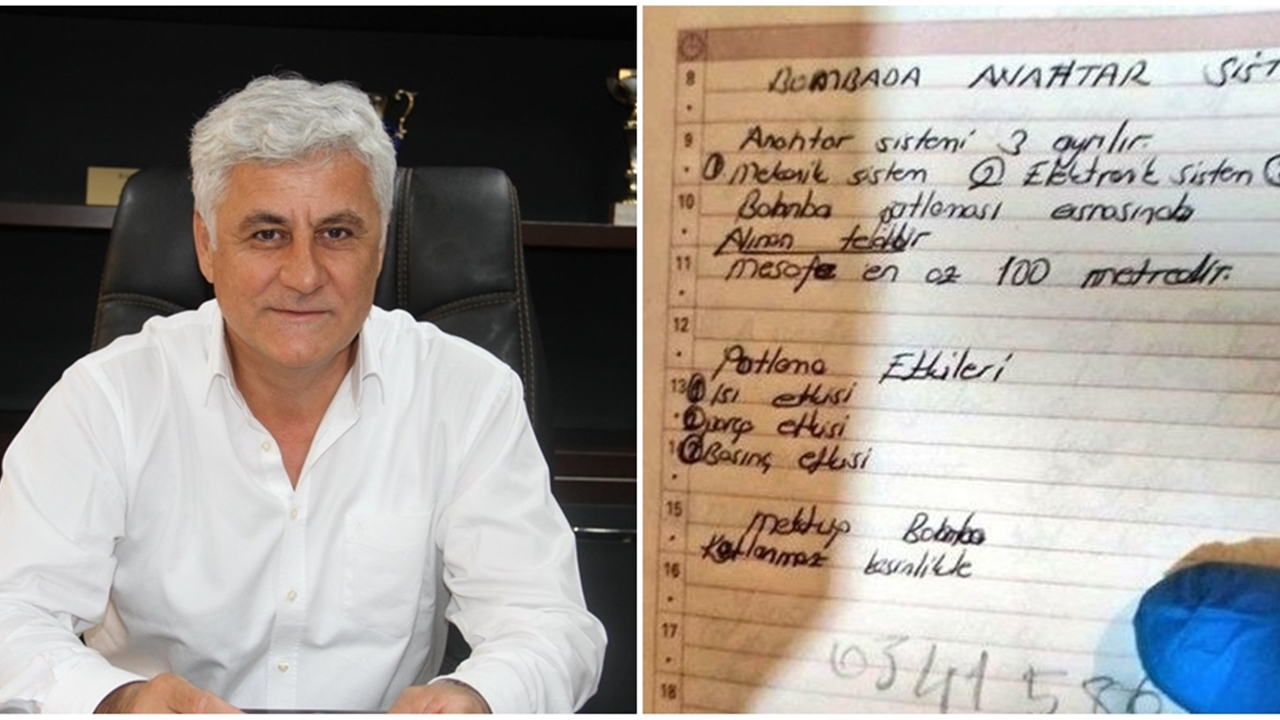 8
BOMBADA ANAHTAR SİST
9
Anahtar sistemi 3 ayrılır.
① Mekanik sistem ② Elektronik sistem
10
Bobmba patlaması esnasında
Alınan tedbir
11
mesafe en az 100 metredir.
12
Patlama Etkileri
13
① Isı etkisi
② etkisi
③ Basınç etkisi
15
mektup Bobmba
Katlanmaz kesinlikle
16
17
0541 586
18